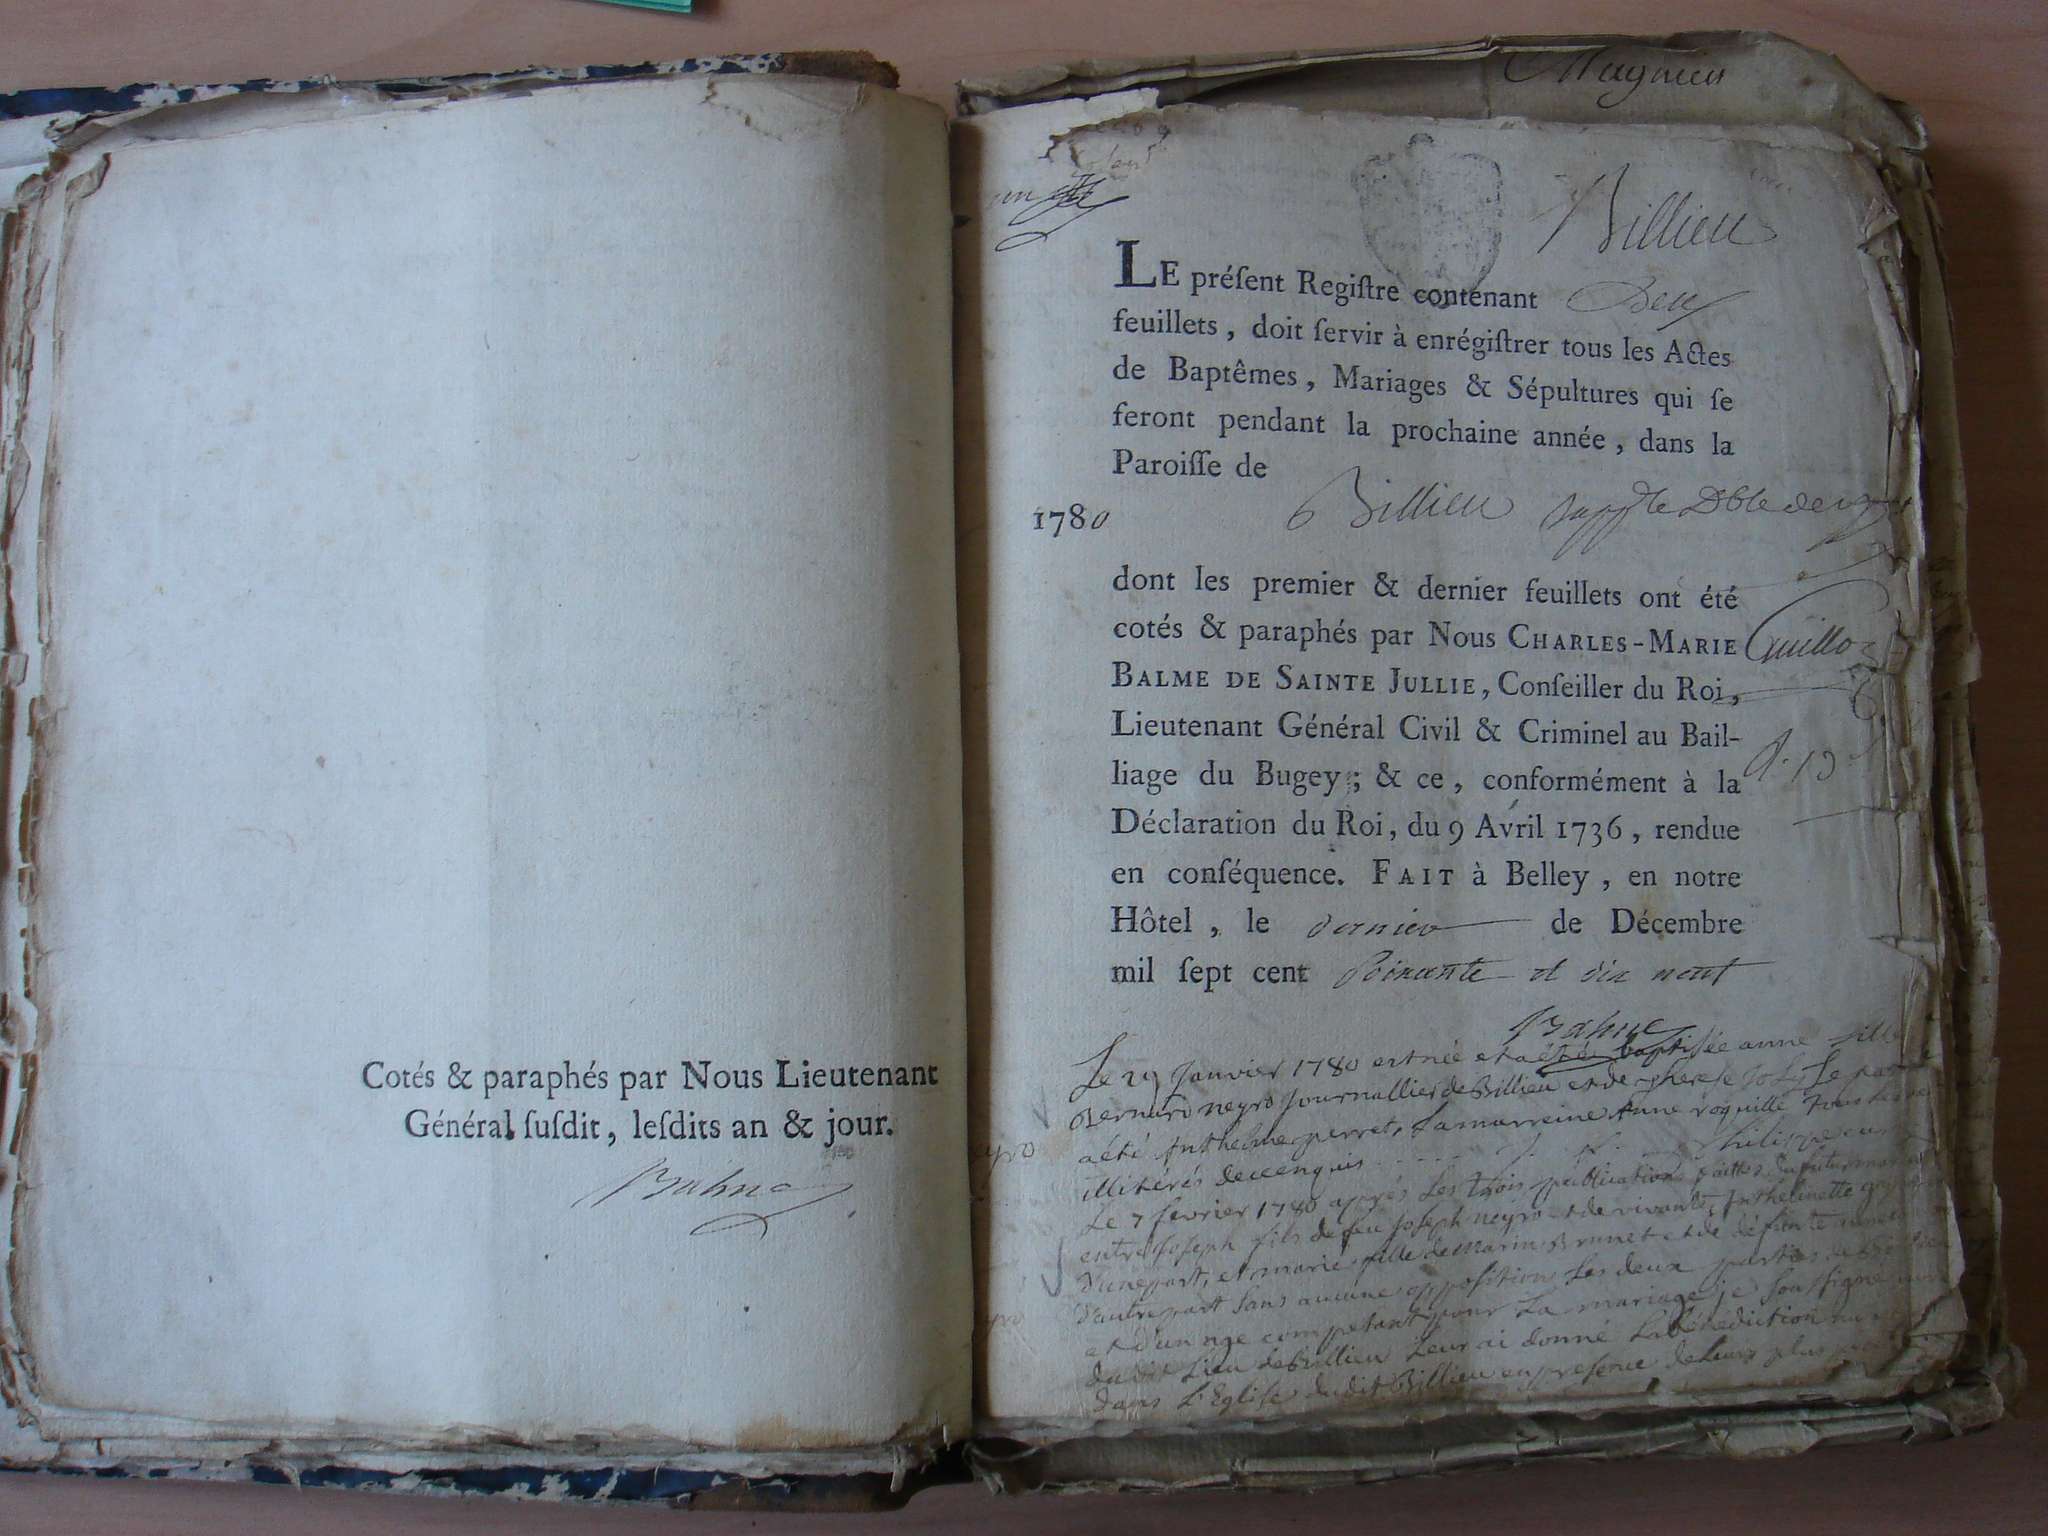 Cotés & paraphés par Nous Lieutenant
Général susdit, lesdits an & jour.
Balme
Magnieu
Billieu
LE préſent Regiſtre contenant Deux
feuillets, doit ſervir à enrégiſtrer tous les Actes
de Baptêmes, Mariages & Sépultures qui ſe
feront pendant la prochaine année, dans la
Paroiſſe de
1780 Billieu
dont les premier & dernier feuillets ont été
cotés & paraphés par Nous CHARLES-MARIE
BALME DE SAINTE JULLIE, Conſeiller du Roi,
Lieutenant Général Civil & Criminel au Bail-
liage du Bugey ; & ce, conformément à la
Déclaration du Roi, du 9 Avril 1736, rendue
en conſéquence. FAIT à Belley, en notre
Hôtel, le dernier de Décembre
mil ſept cent Soixante et dix neuf
Balme
Guilloz
Le 29 Janvier 1780 est née et a été baptisée anne fille
Bernard neyro Journallier de Billieu et de therese Joly Le
a été Anthelme perret, La marreine Anne roquille tous
illiterés de ce enquis Philippe curé
Le 7 fevrier 1780 après les trois publications faittes du futur mariage
entre Joseph fils de feu Joseph neyro et de vivante Anthelmette
d'une part, et marie fille de marin Brunet et de défunte
d'autre part sans aucune opposition Les deux parties de Billieu
et d'un age competant pour Le mariage je soussigné
dudit Lieu de Billieu Leur ai donné La bénédiction
dans L'Eglise dudit Billieu en presence de Leurs plus